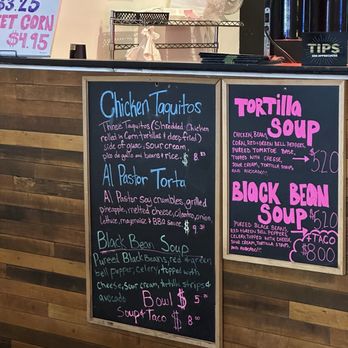 $3.25
ET CORN
$4.95
TIPS
Chicken Taquitos
Three Taquitos (Shredded Chicken
rolled in corn tortillas & deep fried)
side of guac, sour cream,
pico de gallo and beans & rice. $
Al Pastor Torta
Al Pastor soy crumbles, grilled
pineapple, melted cheese, cilantro, onion
lettuce, mayonaise & BBQ sauce. $
Black Bean Soup
Pureed Black Beans, red & green
bell pepper, celery topped with
cheese, sour cream, tortilla strips &
avocado
Bowl $
Soup & Taco $
TORTILLA
SOUP
CHICKEN, BEAN,
CORN, RED & GREEN BELL PEPPERS,
PUREED TOMATOE BASE,
TOPPED WITH CHEESE,
SOUR CREAM, TORTILLA STRIPS
AND AVOCADO!
$5.20
BLACK BEAN
SOUP
$5.20
PUREED BLACK BEANS,
RED & GREEN BELL PEPPERS,
CELERY, TOPPED WITH CHEESE,
SOUR CREAM, TORTILLA STRIPS,
AND AVOCADO!!
& TACO
$8.00